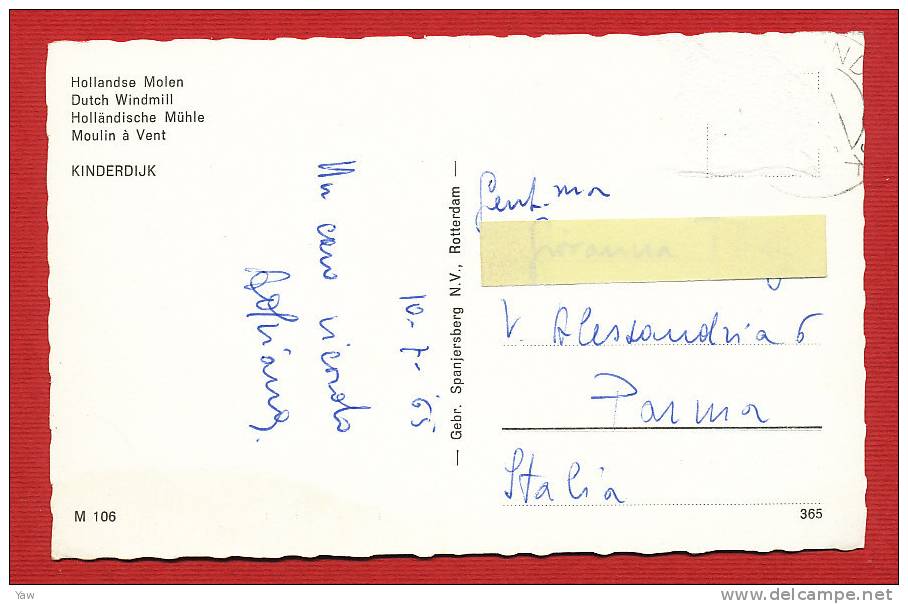 Hollandse Molen
Dutch Windmill
Holländische Mühle
Moulin à Vent
KINDERDIJK
Un caro ricordo
Adriana
10-7-65
— Gebr. Spanjersberg N.V., Rotterdam —
Gent.ma
Giovanna
V. Alessandria 6
Parma
Italia
M 106
365
Yaw
delcampe.net